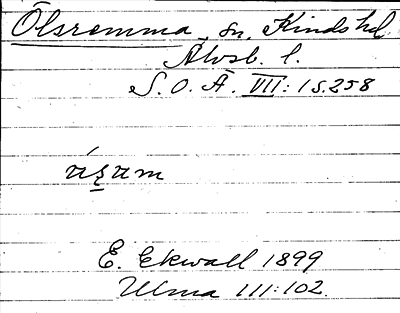 Ölsremma, sn. Kinds hd.
Älvsb. l.
S.O.Ä. VII: 1 s. 258
E. Ekwall 1899
Ulma 111:102.